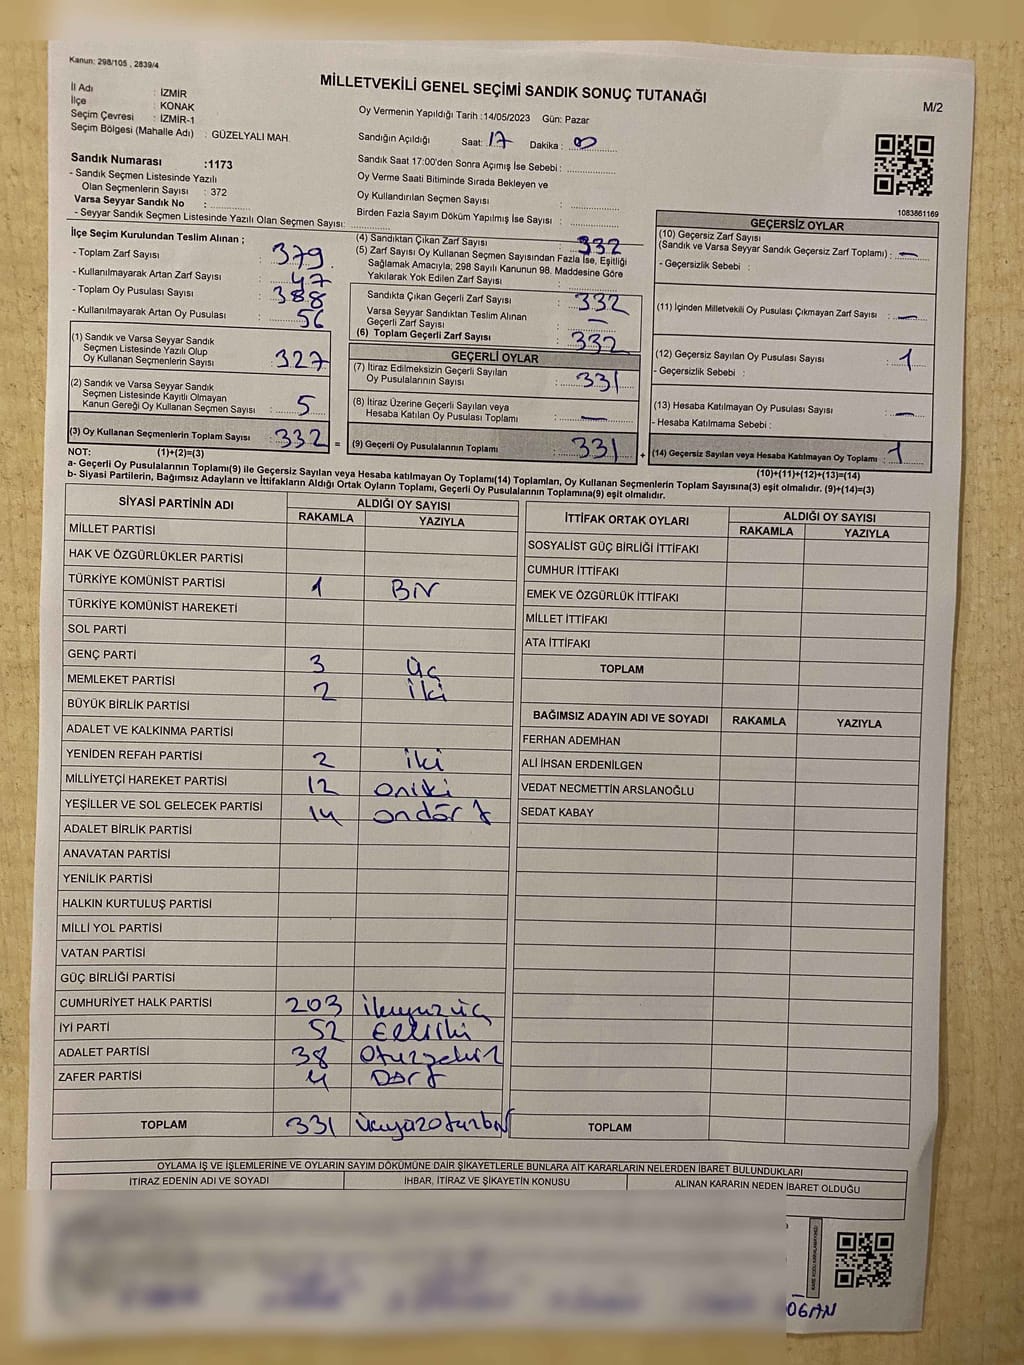 Kanun: 298/105 , 2839/4
MİLLETVEKİLİ GENEL SEÇİMİ SANDIK SONUÇ TUTANAĞI
M/2
İl Adı : İZMİR
İlçe : KONAK
Seçim Çevresi : İZMİR-1
Seçim Bölgesi (Mahalle Adı) : GÜZELYALI MAH.
Oy Vermenin Yapıldığı Tarih :14/05/2023 Gün: Pazar
Sandığın Açıldığı Saat: 17 Dakika : 00
Sandık Saat 17:00'den Sonra Açımış İse Sebebi :
Oy Verme Saati Bitiminde Sırada Bekleyen ve
Oy Kullandırılan Seçmen Sayısı :
Birden Fazla Sayım Döküm Yapılmış İse Sayısı :
1083861169
Sandık Numarası :1173
- Sandık Seçmen Listesinde Yazılı
Olan Seçmenlerin Sayısı : 372
Varsa Seyyar Sandık No :
- Seyyar Sandık Seçmen Listesinde Yazılı Olan Seçmen Sayısı:
İlçe Seçim Kurulundan Teslim Alınan ;
- Toplam Zarf Sayısı : 379
- Kullanılmayarak Artan Zarf Sayısı : 47
- Toplam Oy Pusulası Sayısı : 388
- Kullanılmayarak Artan Oy Pusulası : 56
(1) Sandık ve Varsa Seyyar Sandık
Seçmen Listesinde Yazılı Olup
Oy Kullanan Seçmenlerin Sayısı : 327
(2) Sandık ve Varsa Seyyar Sandık
Seçmen Listesinde Kayıtlı Olmayan
Kanun Gereği Oy Kullanan Seçmen Sayısı : 5
(3) Oy Kullanan Seçmenlerin Toplam Sayısı : 332 =
(4) Sandıktan Çıkan Zarf Sayısı : 332
(5) Zarf Sayısı Oy Kullanan Seçmen Sayısından Fazla İse, Eşitliği
Sağlamak Amacıyla, 298 Sayılı Kanunun 98. Maddesine Göre
Yakılarak Yok Edilen Zarf Sayısı :
Sandıkta Çıkan Geçerli Zarf Sayısı : 332
Varsa Seyyar Sandıktan Teslim Alınan
Geçerli Zarf Sayısı : —
(6) Toplam Geçerli Zarf Sayısı : 332
GEÇERLİ OYLAR
(7) İtiraz Edilmeksizin Geçerli Sayılan
Oy Pusulalarının Sayısı : 331
(8) İtiraz Üzerine Geçerli Sayılan veya
Hesaba Katılan Oy Pusulası Toplamı : —
(9) Geçerli Oy Pusulalarının Toplamı : 331 +
GEÇERSİZ OYLAR
(10) Geçersiz Zarf Sayısı
(Sandık ve Varsa Seyyar Sandık Geçersiz Zarf Toplamı) : —
- Geçersizlik Sebebi :
(11) İçinden Milletvekili Oy Pusulası Çıkmayan Zarf Sayısı : —
(12) Geçersiz Sayılan Oy Pusulası Sayısı : 1
- Geçersizlik Sebebi :
(13) Hesaba Katılmayan Oy Pusulası Sayısı : —
- Hesaba Katılmama Sebebi :
(14) Geçersiz Sayılan veya Hesaba Katılmayan Oy Toplamı : 1
NOT: (1)+(2)=(3) (10)+(11)+(12)+(13)=(14)
a- Geçerli Oy Pusulalarının Toplamı(9) ile Geçersiz Sayılan veya Hesaba katılmayan Oy Toplamı(14) Toplamları, Oy Kullanan Seçmenlerin Toplam Sayısına(3) eşit olmalıdır. (9)+(14)=(3)
b- Siyasi Partilerin, Bağımsız Adayların ve İttifakların Aldığı Ortak Oyların Toplamı, Geçerli Oy Pusulalarının Toplamına(9) eşit olmalıdır.
SİYASİ PARTİNİN ADI ALDIĞI OY SAYISI
RAKAMLA YAZIYLA
MİLLET PARTİSİ
HAK VE ÖZGÜRLÜKLER PARTİSİ
TÜRKİYE KOMÜNİST PARTİSİ 1 Bir
TÜRKİYE KOMÜNİST HAREKETİ
SOL PARTİ
GENÇ PARTİ 3 üç
MEMLEKET PARTİSİ 2 iki
BÜYÜK BİRLİK PARTİSİ
ADALET VE KALKINMA PARTİSİ
YENİDEN REFAH PARTİSİ 2 iki
MİLLİYETÇİ HAREKET PARTİSİ 12 oniki
YEŞİLLER VE SOL GELECEK PARTİSİ 14 ondört
ADALET BİRLİK PARTİSİ
ANAVATAN PARTİSİ
YENİLİK PARTİSİ
HALKIN KURTULUŞ PARTİSİ
MİLLİ YOL PARTİSİ
VATAN PARTİSİ
GÜÇ BİRLİĞİ PARTİSİ
CUMHURİYET HALK PARTİSİ 203 ikiyüzüç
İYİ PARTİ 52 Elliiki
ADALET PARTİSİ 38 Otuzsekiz
ZAFER PARTİSİ 4 Dört
TOPLAM 331 üçyüzotuzbir
İTTİFAK ORTAK OYLARI ALDIĞI OY SAYISI
RAKAMLA YAZIYLA
SOSYALİST GÜÇ BİRLİĞİ İTTİFAKI
CUMHUR İTTİFAKI
EMEK VE ÖZGÜRLÜK İTTİFAKI
MİLLET İTTİFAKI
ATA İTTİFAKI
TOPLAM
BAĞIMSIZ ADAYIN ADI VE SOYADI RAKAMLA YAZIYLA
FERHAN ADEMHAN
ALİ İHSAN ERDENİLGEN
VEDAT NECMETTİN ARSLANOĞLU
SEDAT KABAY
TOPLAM
OYLAMA İŞ VE İŞLEMLERİNE VE OYLARIN SAYIM DÖKÜMÜNE DAİR ŞİKAYETLERLE BUNLARA AİT KARARLARIN NELERDEN İBARET BULUNDUKLARI
İTİRAZ EDENİN ADI VE SOYADI İHBAR, İTİRAZ VE ŞİKAYETİN KONUSU ALINAN KARARIN NEDEN İBARET OLDUĞU